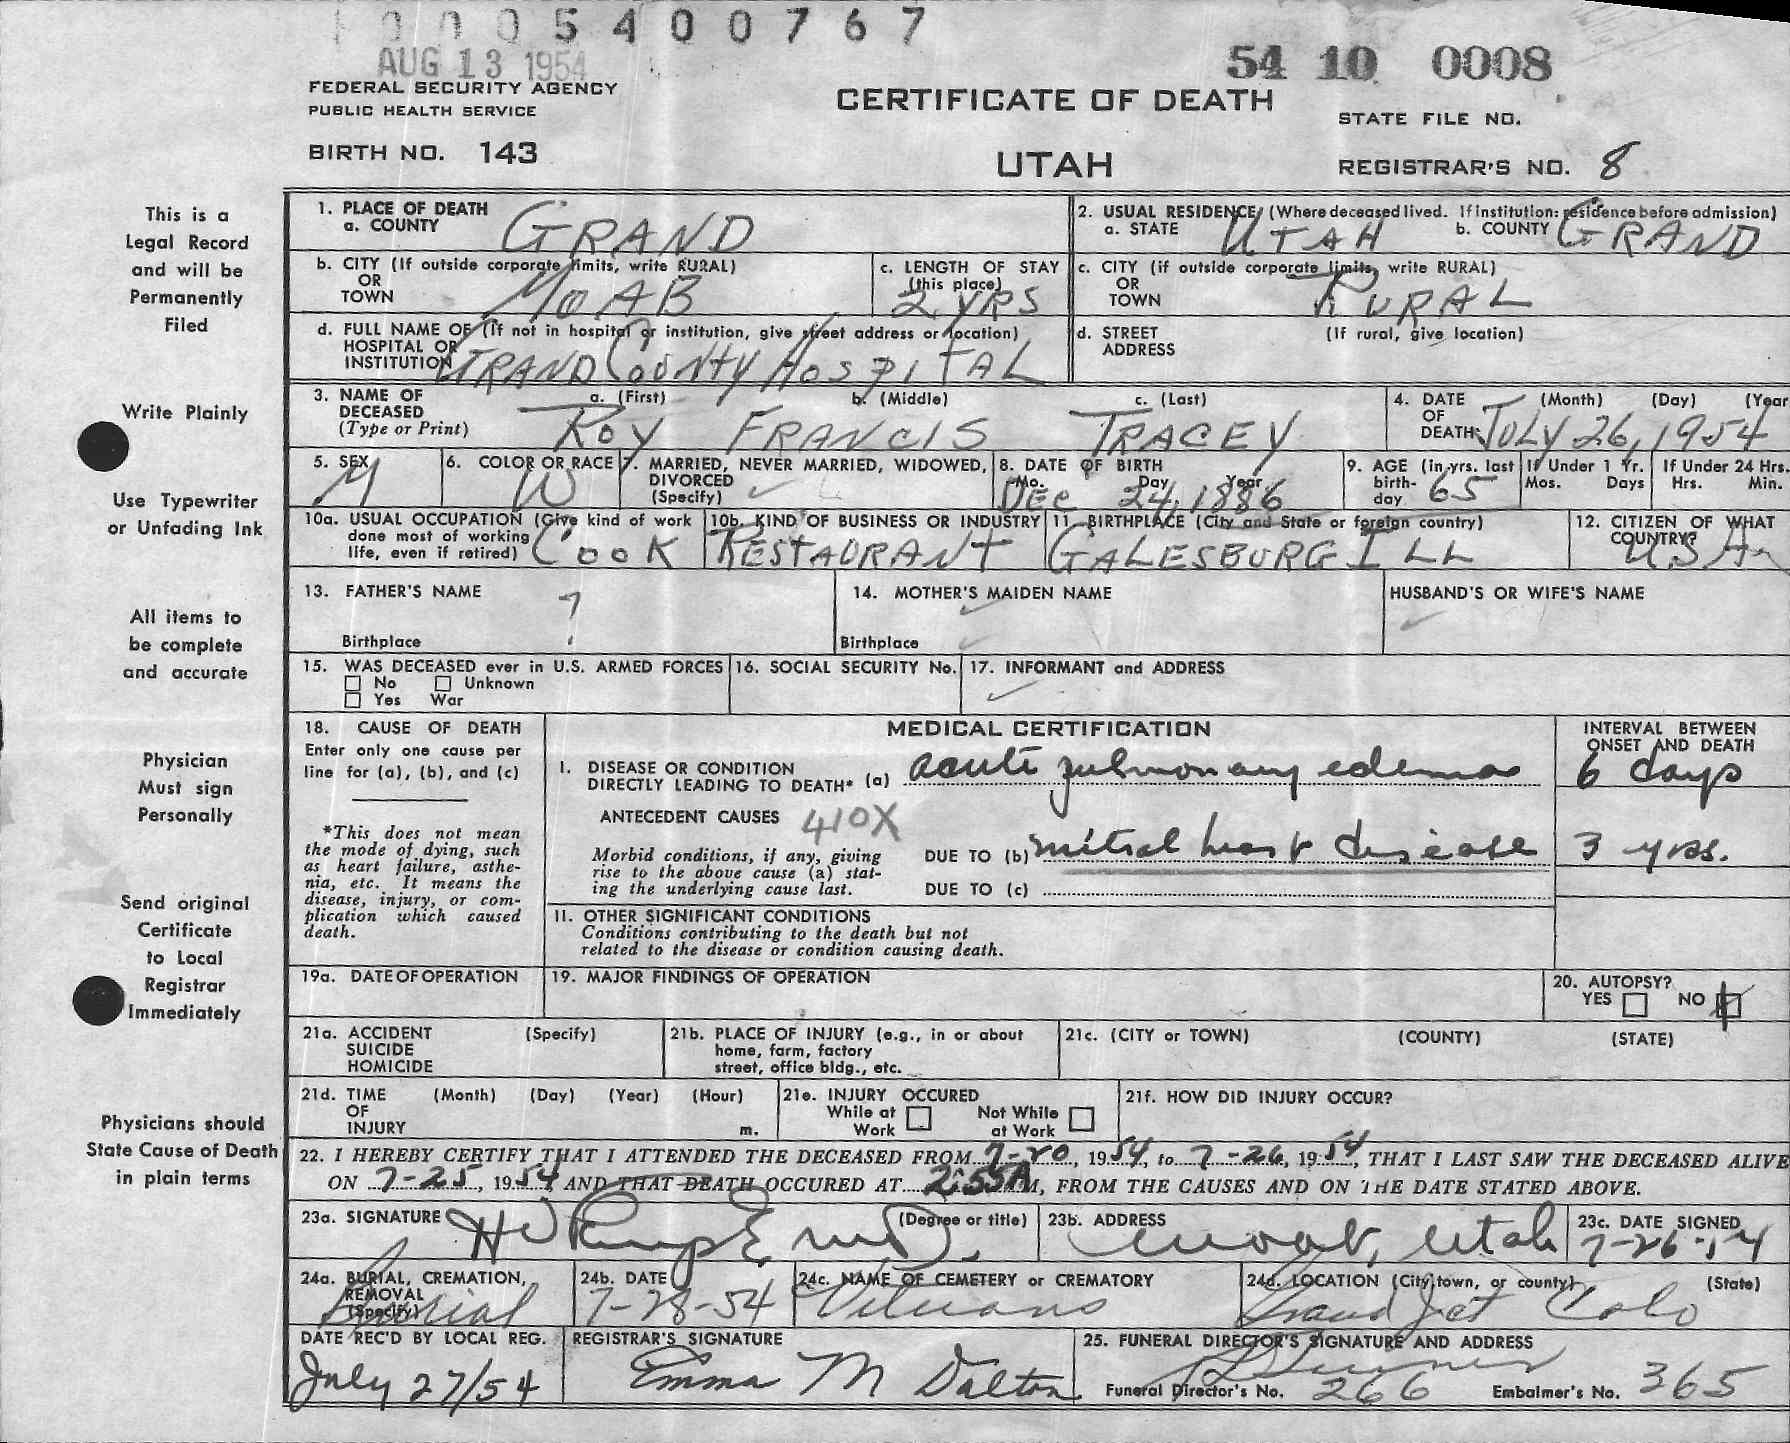 0 0 0 5 4 0 0 7 6 7
AUG 13 1954
54 10 0008
FEDERAL SECURITY AGENCY
PUBLIC HEALTH SERVICE
CERTIFICATE OF DEATH
STATE FILE NO.
BIRTH NO. 143
UTAH
REGISTRAR'S NO. 8
This is a
Legal Record
and will be
Permanently
Filed
Write Plainly
Use Typewriter
or Unfading Ink
All items to
be complete
and accurate
Physician
Must sign
Personally
Send original
Certificate
to Local
Registrar
Immediately
Physicians should
State Cause of Death
in plain terms
1. PLACE OF DEATH
a. COUNTY GRAND
2. USUAL RESIDENCE (Where deceased lived. If institution: residence before admission)
a. STATE UTAH b. COUNTY GRAND
b. CITY (If outside corporate limits, write RURAL)
OR
TOWN MOAB
c. LENGTH OF STAY
(this place)
2 YRS
c. CITY (if outside corporate limits, write RURAL)
OR
TOWN RURAL
d. FULL NAME OF (If not in hospital or institution, give street address or location)
HOSPITAL OR
INSTITUTION GRAND COUNTY HOSPITAL
d. STREET (If rural, give location)
ADDRESS
3. NAME OF DECEASED (Type or Print)
a. (First) b. (Middle) c. (Last)
ROY FRANCIS TRACEY
4. DATE OF DEATH (Month) (Day) (Year
JULY 26, 1954
5. SEX
M
6. COLOR OR RACE
W
7. MARRIED, NEVER MARRIED, WIDOWED,
DIVORCED
(Specify)
8. DATE OF BIRTH
Mo. Day Year
DEC 24, 1886
9. AGE (in yrs. last
birth-
day 65
If Under 1 Yr.
Mos. Days
If Under 24 Hrs.
Hrs. Min.
10a. USUAL OCCUPATION (Give kind of work
done most of working
life, even if retired) COOK
10b. KIND OF BUSINESS OR INDUSTRY
RESTAURANT
11. BIRTHPLACE (City and State or foreign country)
GALESBURG ILL
12. CITIZEN OF WHAT
COUNTRY?
U.S.A.
13. FATHER'S NAME
?
Birthplace
14. MOTHER'S MAIDEN NAME
Birthplace
HUSBAND'S OR WIFE'S NAME
15. WAS DECEASED ever in U.S. ARMED FORCES
No Unknown
Yes War
16. SOCIAL SECURITY No.
17. INFORMANT and ADDRESS
18. CAUSE OF DEATH
Enter only one cause per
line for (a), (b), and (c)
*This does not mean
the mode of dying, such
as heart failure, asthe-
nia, etc. It means the
disease, injury, or com-
plication which caused
death.
MEDICAL CERTIFICATION
INTERVAL BETWEEN
ONSET AND DEATH
I. DISEASE OR CONDITION
DIRECTLY LEADING TO DEATH* (a) acute pulmonary edema 6 days
ANTECEDENT CAUSES 410X
Morbid conditions, if any, giving
rise to the above cause (a) stat-
ing the underlying cause last.
DUE TO (b) mitral heart disease 3 yrs.
DUE TO (c)
II. OTHER SIGNIFICANT CONDITIONS
Conditions contributing to the death but not
related to the disease or condition causing death.
19a. DATE OF OPERATION
19. MAJOR FINDINGS OF OPERATION
20. AUTOPSY?
YES NO
21a. ACCIDENT (Specify)
SUICIDE
HOMICIDE
21b. PLACE OF INJURY (e.g., in or about
home, farm, factory
street, office bldg., etc.
21c. (CITY or TOWN) (COUNTY) (STATE)
21d. TIME (Month) (Day) (Year) (Hour)
OF
INJURY m.
21e. INJURY OCCURED
While at Work Not While at Work
21f. HOW DID INJURY OCCUR?
22. I HEREBY CERTIFY THAT I ATTENDED THE DECEASED FROM 7-20, 1954, to 7-26, 1954, THAT I LAST SAW THE DECEASED ALIVE
ON 7-25, 1954, AND THAT DEATH OCCURED AT 2:55A M, FROM THE CAUSES AND ON THE DATE STATED ABOVE.
23a. SIGNATURE (Degree or title)
M.D.
23b. ADDRESS
Moab, Utah
23c. DATE SIGNED
7-26-54
24a. BURIAL, CREMATION,
REMOVAL
(Specify)
Burial
24b. DATE
7-28-54
24c. NAME OF CEMETERY or CREMATORY
Veterans
24d. LOCATION (City, town, or county) (State)
Grand Jct Colo
DATE REC'D BY LOCAL REG.
July 27/54
REGISTRAR'S SIGNATURE
Emma M Dalton
25. FUNERAL DIRECTOR'S SIGNATURE AND ADDRESS
Funeral Director's No. 266 Embalmer's No. 365